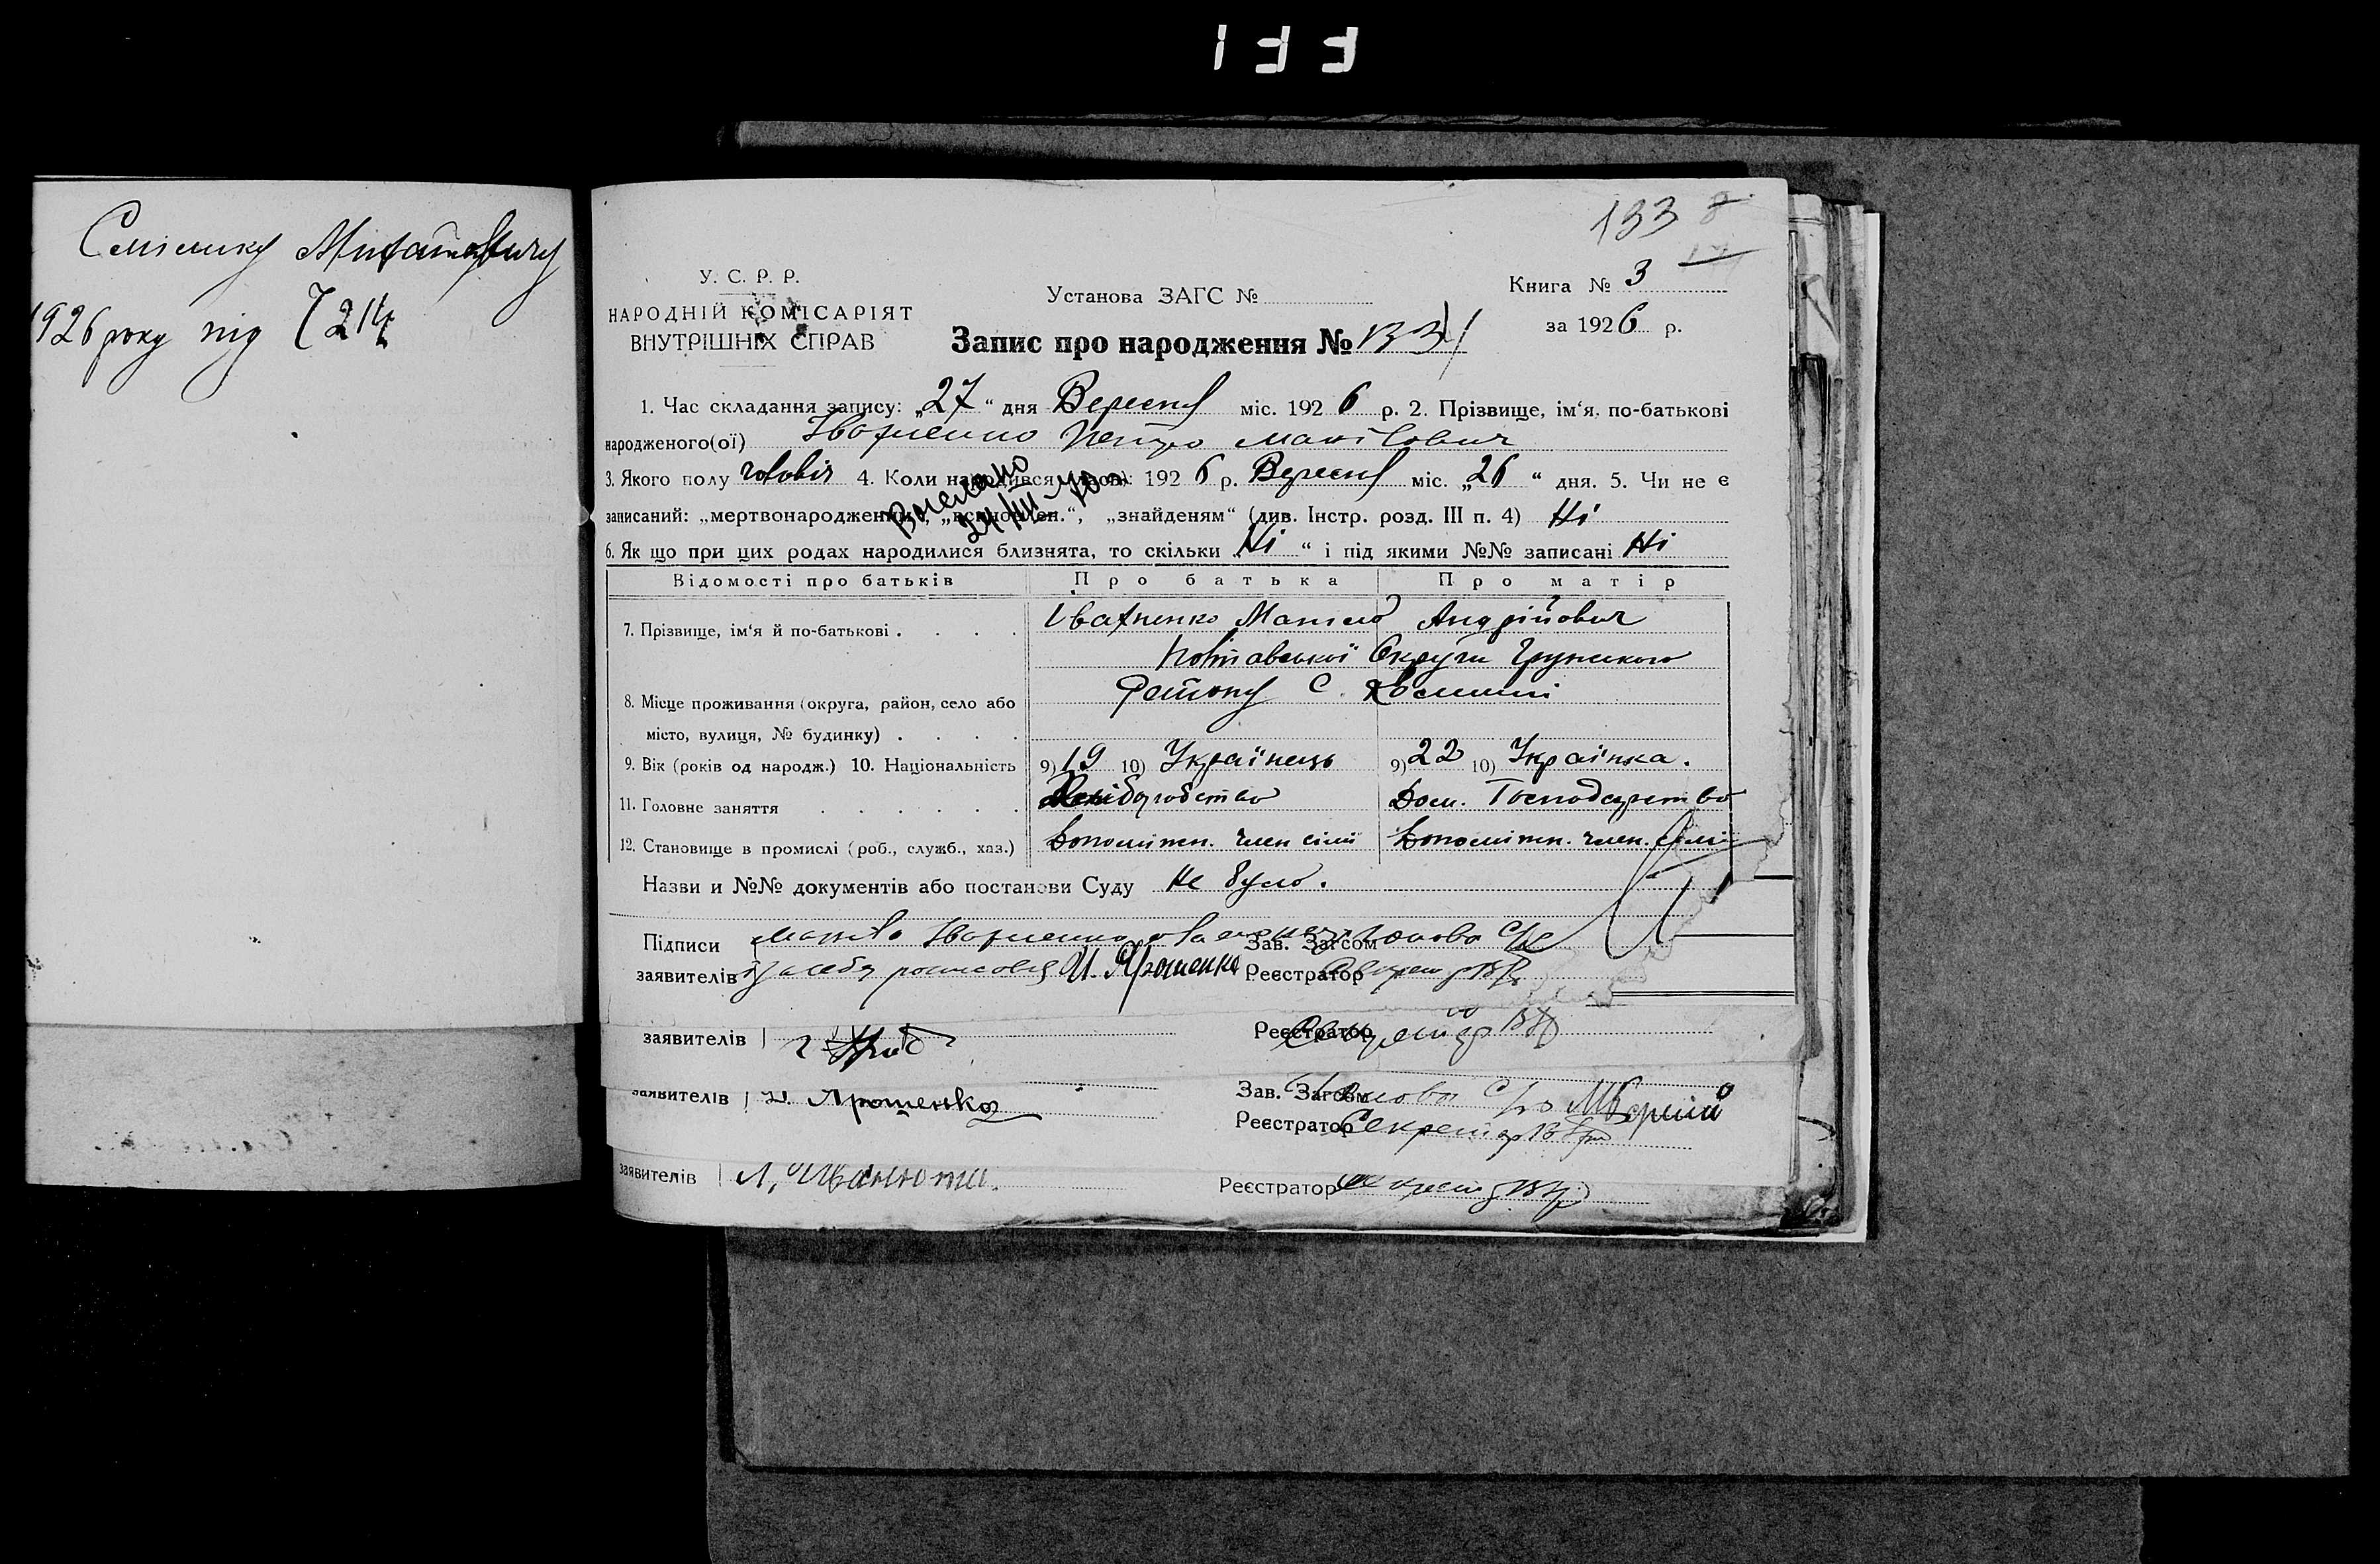 133
Семенку
1926 року під 214
133
У. С. Р. Р.
НАРОДНІЙ КОМІСАРІЯТ
ВНУТРІШНІХ СПРАВ
Установа ЗАГС №
Книга № 3
за 1926 р.
Запис про народження №
1. Час складання запису: „27“ дня Вересня міс. 1926 р. 2. Прізвище, ім‘я, по-батькові
народженого(ої) Івахненко Петро
3. Якого полу чоловіч 4. Коли народився (час): 1926 р. Вересня міс. „26“ дня. 5. Чи не є
записаний: „мертвонародженим“, „встановлен.“, „знайденям“ (див. Інстр. розд. III п. 4) Ні
Вислано
6. Як що при цих родах народилися близнята, то скільки „Ні“ і під якими №№ записані Ні
Відомості про батьків Про батька Про матір
7. Прізвище, ім‘я й по-батькові . . . . Івахненко Андрійович
Полтавської Округи Грунського
Району с.
8. Місце проживання (округа, район, село або
місто, вулиця, № будинку) . . . .
9. Вік (років од народж.) 10. Національність 9) 19 10) Українець 9) 22 10) Українка.
11. Головне заняття . . . . . . Хліборобство Дом. Господарство
12. Становище в промислі (роб., служб., хаз.) Допоміжн. член сімї Допоміжн. член сімї
Назви и №№ документів або постанови Суду Не було.
Підписи Івахненко Зав. Загсом Голова С/Р
заявителів И. Ярошенко Реєстратор Секретар
заявителів Реєстратор Секретар
заявителів И. Ярошенко Зав. Загсом Голова
Реєстратор Секретар
заявителів Л. Реєстратор Секретар